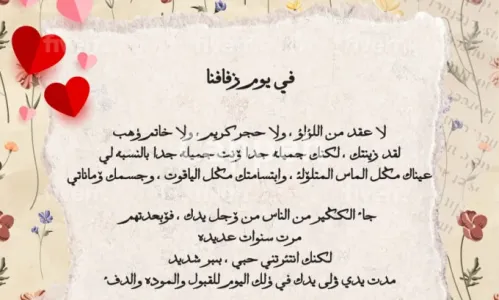 في يوم زفافنا
لا عقد من اللؤلؤ ، ولا حجر كريم ، ولا خاتم ذهب
لقد زينتك ، لكنك جميله جدا جميله جدا بالنسبه لي
عيناك مثل الماس ، وابتسامتك مثل الياقوت ، وجسمك
جاء الكثير من الناس من أجل يدك ،
مرت سنوات عديده
لكنك انتظرتني حبي ، بصبر شديد
مدت يدي إلى يدك في ذلك اليوم للقبول والموده والدفء